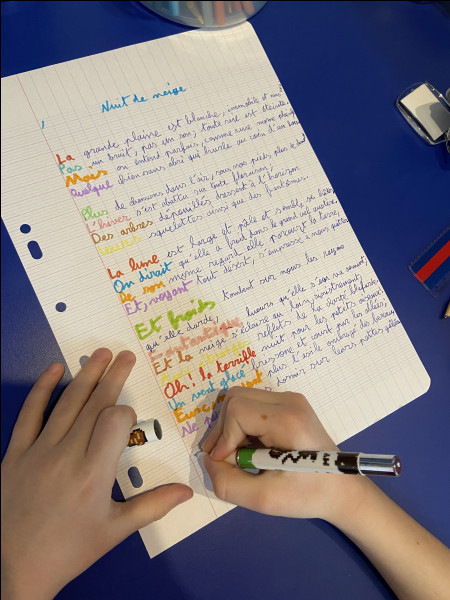 Nuit de neige
La grande plaine est blanche, immobile et
Pas un bruit, pas un son; toute vie est éteinte.
Mais on entend parfois, comme une morne plainte
Quelque chien sans abri qui hurle au coin d'un bois
Plus de chansons dans l'air, sous nos pieds, plus de
L'hiver s'est abattu sur toute floraison;
Des arbres dépouillés dressent à l'horizon
Leurs squelettes ainsi que des fantômes.
La lune est large et pâle et semble se hâter
On dirait qu'elle a froid dans le grand ciel austère.
De son morne regard elle parcourt la terre,
Et, voyant tout désert, s'empresse à nous quitter
Et froids tombent sur nous les rayons
qu'elle darde,
Fantastiques lueurs qu'elle s'en va semant;
Et la neige s'éclaire au loin, sinistrement,
reflets de la clarté blafarde.
Oh! la terrible nuit pour les petits oiseaux!
Un vent glacé frissonne et court par les allées;
Eux, n'ayant plus l'asile ombragé des berceaux,
Ne dormir sur leurs pattes gelées